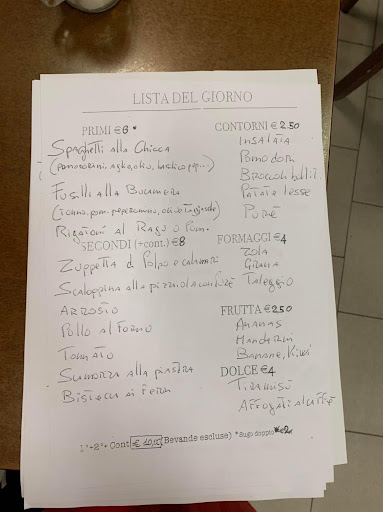 LISTA DEL GIORNO
PRIMI € 6 *
Spaghetti alla Chicca
(pomodorini, aglio, olio, basilico pep...)
Fusilli alla Bucaniera
(Tonno, pom. peperoncino, olive taggiasche)
Rigatoni al Ragù o Pom.
SECONDI (+cont.) €8
Zuppetta di Polpo e calamari
Scaloppina alla pizzaiola con purè
ARROSTO
Pollo al Forno
Tomato
Scamorza alla piastra
Bistecca ai Ferri
CONTORNI € 2.50
Insalata
Pomodori
Broccoli bolliti
Patate lesse
Purè
FORMAGGI €4
Zola
Grana
Taleggio
FRUTTA € 2.50
Ananas
Mandarini
Banane, Kiwi
DOLCE €4
Tiramisù
Affogati al caffè
1°+2°+ Cont. € 10,00 (Bevande escluse) *Sugo doppio +€2